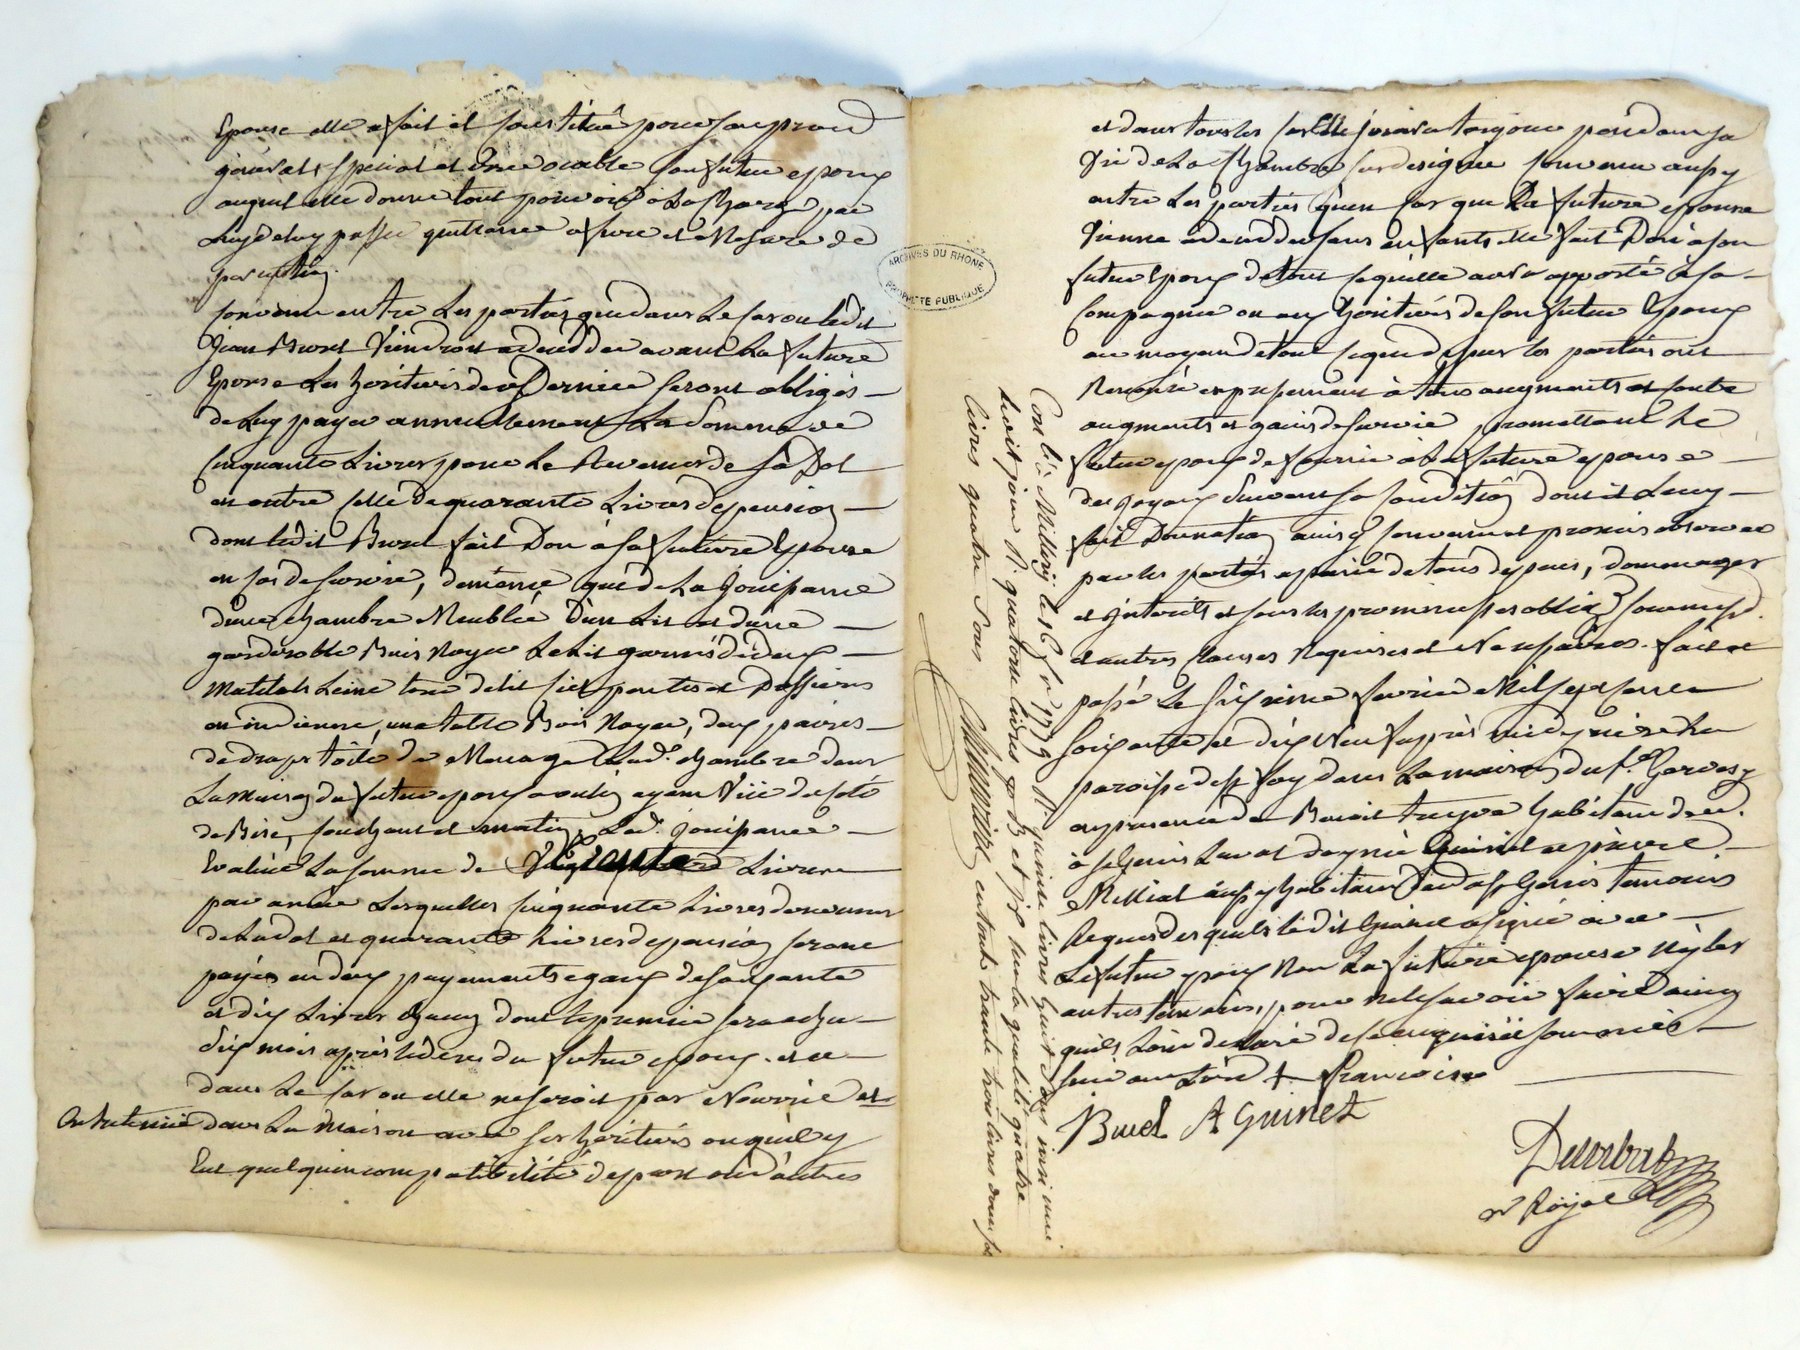 Epouse elle a fait et constitué pour son procur
général special et irrevocable son futur epoux
auquel elle donne tout pouvoir à la charge par
luy de luy passer quittance a fure et a Mesure de
perception
convenu entre Les parties que dans Le cas ou ledit
Jean Burel Viendroit a deceder avant La future
Epouse Les heritiers de ce Dernier seront obligés
de Luy payer annuellement La Somme de
Cinquante Livres pour Le Revenus de sa Dot
en outre celle de quarante Livres de pension
dont ledit Burel fait Don à sa future Epouse
en cas de survie, de même que de La Jouissance
d'une chambre Meublée, D'un Lit et d'une
garderobbe Bois Noyer Le Lit garnis de deux
Matelats Leine tour de lit pentes et Dossiers
en indienne, une table Bois Noyer, deux paires
de draps toile de Menage lad. chambre dans
La Maison du futur epoux ayant Vüe du coté
de Bise, couchant et matin Lad. Jouissance
Evaluée La somme de Livres
par année Lesquelles cinquante Livres de revenus
de La dot et quarante Livres de pension seront
payés en deux payements egaux de soixante
et dix Livres chacun dont le premier sera echu
Six mois après le décès du futur epoux et ce
dans Le cas ou elle ne seroit pas Nourrie et
Entretenüe dans La Maison avec ses heritiers ou qu'il y
Eut quelqu'incompatibilité de part ou d'autres
ARCHIVES DU RHONE
PROPRIETE PUBLIQUE
et dans tous les cas elle jouira toujours pendant sa
Vie de La Chambre sus designée convenu aussy
entre Les parties qu'en cas que La future epouse
Vienne a deceder sans enfants elle fait Don a son
futur Epoux de tout ce qu'elle aura apporté à sa
Compagnie ou aux heritiers de son futur Epoux
au moyen de tout ce que dessus les parties ont
Renoncé expressement à tous augments et contre
augments et gains de survie, promettant Le
futur epoux de fournir à La future epouse
des Joyaux Suivant sa Condition dont il Luy
fait Donnation ainsy convenu et promis observer
par les parties a peine de tous depens, dommages
et Interets et sous les promesses obligõn soumisõn
et autres clauses Requises et Necessaires. fait et
passé Le sixieme fevrier Mil sept cent
soixante et dix Neuf après midy riere La
paroisse de Ste foy dans La maison du sr. Gervasy
en presence de Benoit habitant dem.
à St Genis Laval d'aynié Guinet et pierre
Mellial aussy habitant Dud. St Genis temoins
Requis desquels ledit Guinet a signé avec
Le futur epoux Non La future epouse Ny les
autres temoins, pour ne sçavoir faire Dainsy
qu'ils L'ont declaré de ce enquis et sommés
suivant Lord + francoise
Burel A Guinet
Delorbre
nr Royal
Con lé à Millery le 16 f. 1779 R. quinze livres huit sous
huit pour R quatorze livres
livres quatre sous en tout trente trois livres douze sols